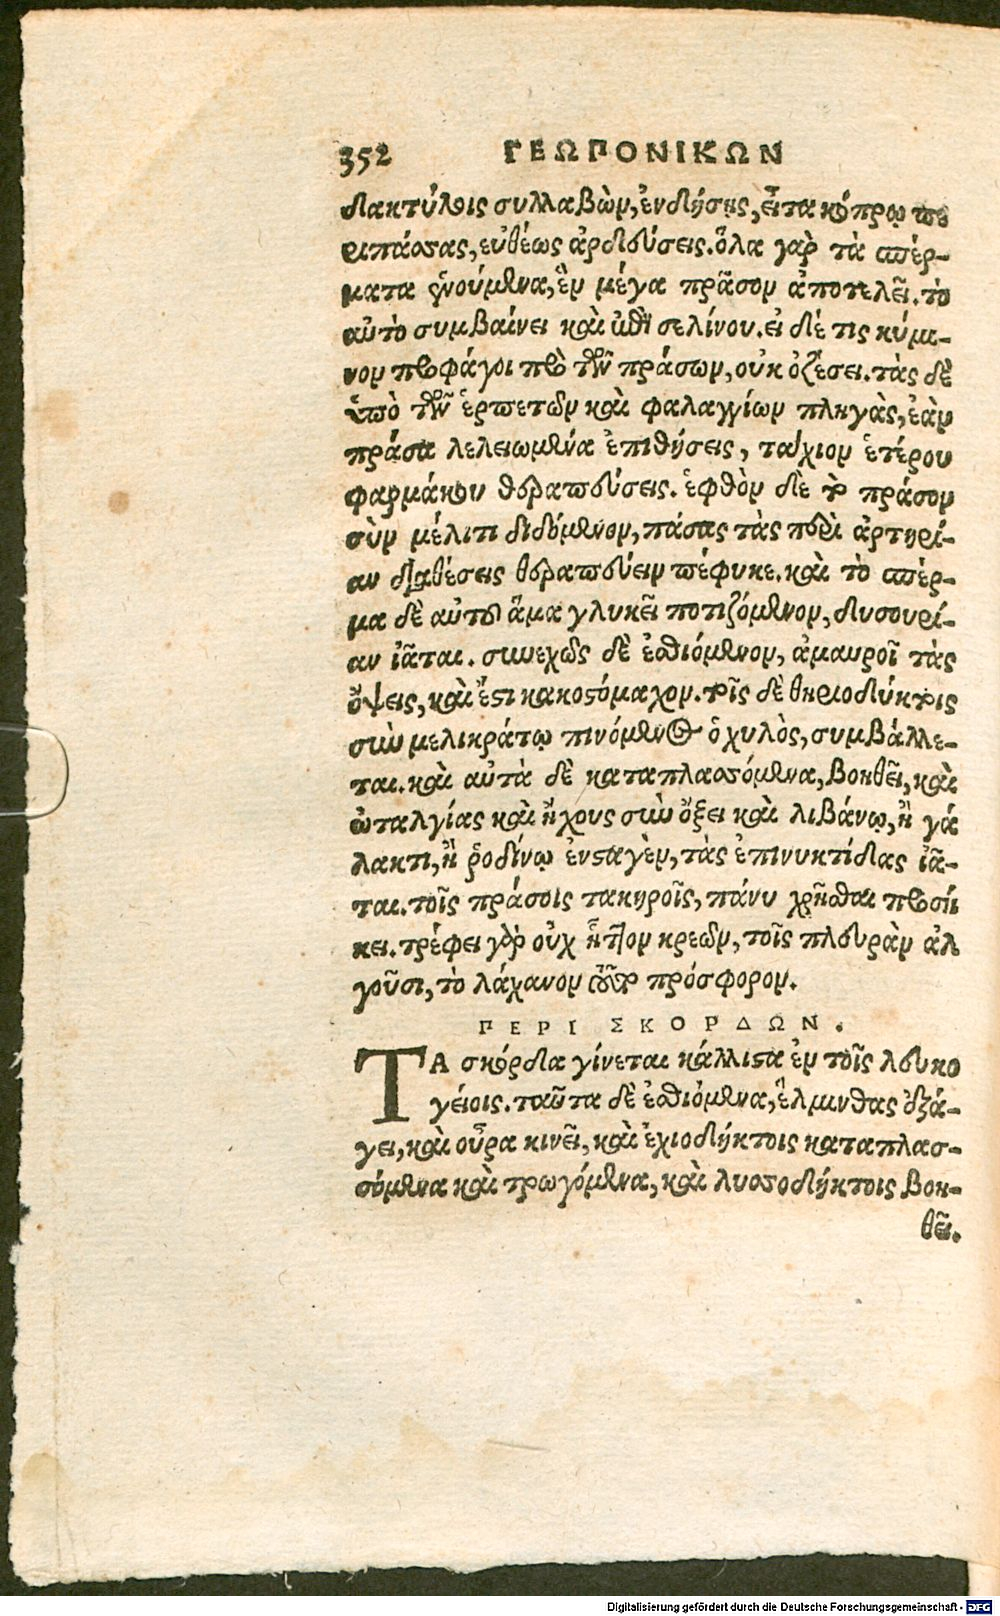 352 ΓΕΩΠΟΝΙΚΩΝ
δακτύλοις συλλαβὼν, ἐνδήσῃς, εἶτα κόπρῳ πε
ριπάσσας, εὐθέως ἀρδεύσεις. ὅλα γὰρ τὰ σπέρ-
ματα ἑνούμενα, ἓν μέγα πρᾶσον ἀποτελεῖ. τὸ
αὐτὸ συμβαίνει καὶ ἐπὶ σελίνου. εἰ δέ τις κύμι-
νον προφάγοι πρὸ τῶν πράσων, οὐκ ὀζέσει. τὰς δὲ
ὑπὸ τῶν ἑρπετῶν καὶ φαλαγγίων πληγὰς, ἐὰν
πράσα λελειωμένα ἐπιθήσεις, τάχιον ἑτέρου
φαρμάκου θεραπεύσεις. ἑφθὸν δὲ τὸ πράσον
σὺν μέλιτι διδόμενον, πάσας τὰς περὶ ἀρτηρί-
αν διαθέσεις θεραπεύειν πέφυκε. καὶ τὸ σπέρ-
μα δὲ αὐτοῦ ἅμα γλυκεῖ ποτιζόμενον, δυσουρί-
αν ἰᾶται. συνεχῶς δὲ ἐσθιόμενον, ἀμαυροῖ τὰς
ὄψεις, καὶ ἔστι κακοστόμαχον. τοῖς δὲ θηριοδύκτοις
σὺν μελικράτῳ πινόμενος ὁ χυλὸς, συμβάλλε-
ται. καὶ αὐτὰ δὲ καταπλασσόμενα, βοηθεῖ, καὶ
ὠταλγίας καὶ ἤχους σὺν ὄξει καὶ λιβάνῳ, ἢ γά
λακτι, ἢ ῥοδίνῳ ἐνσταγὲν, τὰς ἐπινυκτίδας ἰᾶ-
ται. τοῖς πράσοις τακηροῖς, πάνυ χρῆσθαι προσή
κει. τρέφει γὰρ οὐχ ἧττον κρεῶν, τοῖς πλευρὰν ἀλ
γοῦσι, τὸ λάχανον οὖν πρόσφορον.
ΠΕΡΙ ΣΚΟΡΔΩΝ.
ΤΑ σκόρδα γίνεται κάλλιστα ἐν τοῖς λευκο
γείοις. ταῦτα δὲ ἐσθιόμενα, ἕλμινθας ἐξά-
γει, καὶ οὖρα κινεῖ, καὶ ἐχιοδήκτοις καταπλασ-
σόμενα καὶ τρωγόμενα, καὶ λυσσοδήκτοις βοη-
θεῖ.
Digitalisierung gefördert durch die Deutsche Forschungsgemeinschaft - DFG